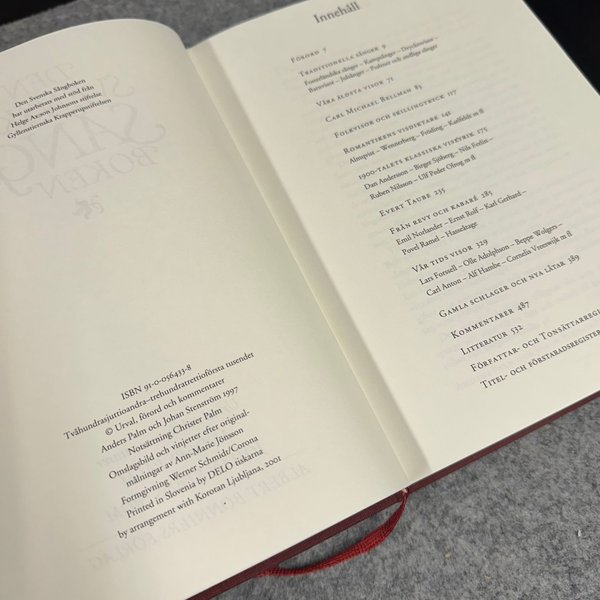 Den Svenska Sångboken
har utarbetats med stöd från
Helge Ax:son Johnsons stiftelse
Gyllenstiernska Krapperupstiftelsen
ISBN 91-0-056433-8
Tvåhundrasjuttioandra–trehundratrettioförsta tusendet
© Urval, förord och kommentarer
Anders Palm och Johan Stenström 1997
Notsättning Christer Palm
Omslagsbild och vinjetter efter original-
målningar av Ann-Marie Jönsson
Formgivning Werner Schmidt/Corona
Printed in Slovenia by DELO tiskarna
by arrangement with Korotan Ljubljana, 2001
Innehåll
Förord 7
Traditionella sånger 9
Fosterländska sånger – Kampsånger – Dryckesvisor –
Barnvisor – Julsånger – Psalmer och andliga sånger
Våra äldsta visor 71
Carl Michael Bellman 85
Folkvisor och skillingtryck 117
Romantikens visdiktare 146
Almqvist – Wennerberg – Fröding – Karlfeldt m fl
1900-talets klassiska vislyrik 175
Dan Andersson – Birger Sjöberg – Nils Ferlin –
Ruben Nilson – Ulf Peder Olrog m fl
Evert Taube 235
Från revy och kabaré 285
Emil Norlander – Ernst Rolf – Karl Gerhard –
Povel Ramel – Hasse&Tage
Vår tids visor 329
Lars Forssell – Olle Adolphson – Beppe Wolgers –
Carl Anton – Alf Hambe – Cornelis Vreeswijk m fl
Gamla schlager och nya låtar 389
Kommentarer 487
Litteratur 532
Författar- och Tonsättarregi
Titel- och förstaradsregister